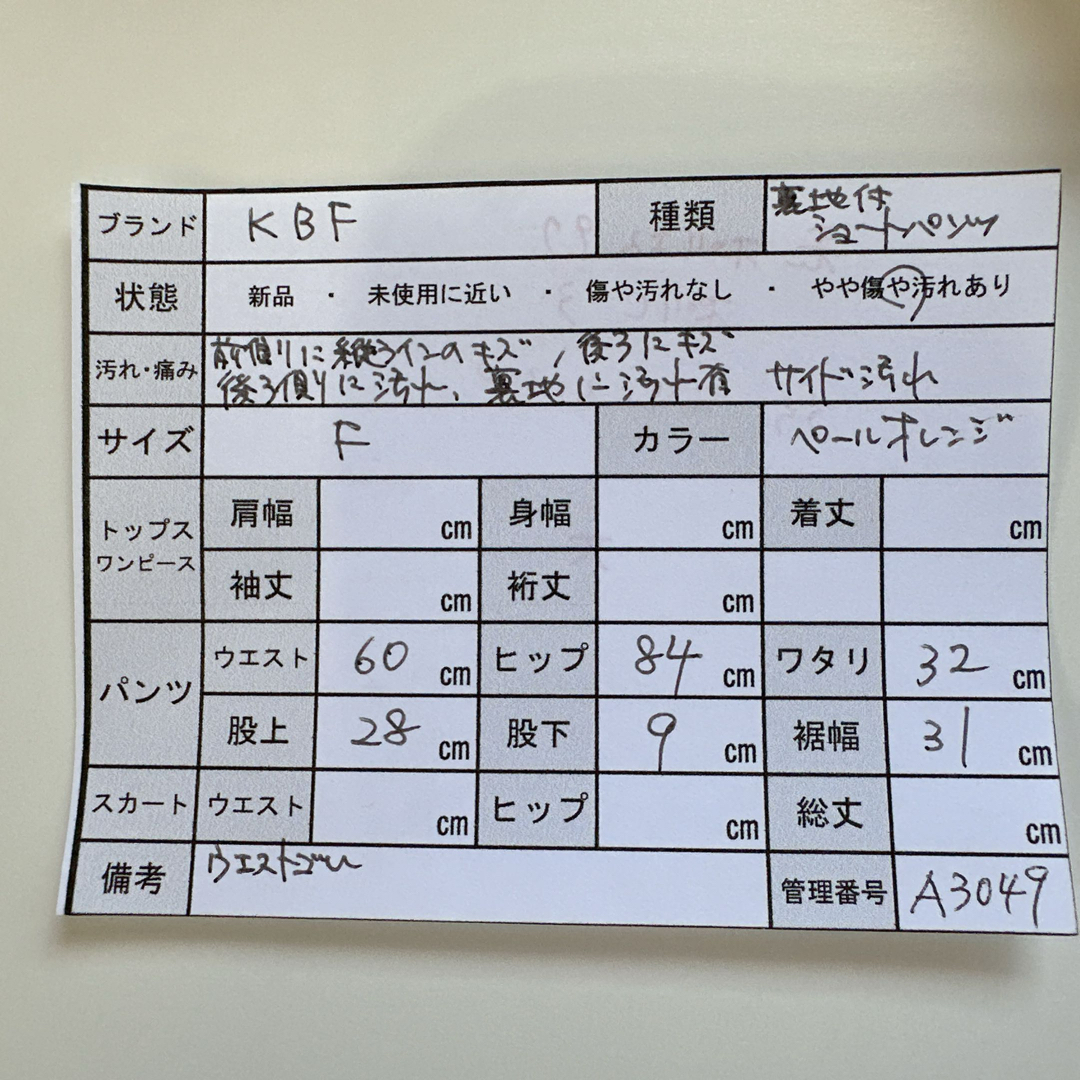 ブランド KBF 種類 裏地付
ショートパンツ
状態 新品 ・ 未使用に近い ・ 傷や汚れなし ・ やや傷や汚れあり
汚れ・痛み 前側に縦ラインのキズ、後ろにキズ
後ろ側に汚れ、裏地に汚れ有 サイド汚れ
サイズ F カラー ペールオレンジ
トップス
ワンピース
肩幅 cm 身幅 cm 着丈 cm
袖丈 cm 裄丈 cm
パンツ
ウエスト 60 cm ヒップ 84 cm ワタリ 32 cm
股上 28 cm 股下 9 cm 裾幅 31 cm
スカート ウエスト cm ヒップ cm 総丈 cm
備考 ウエストゴム 管理番号 A3049